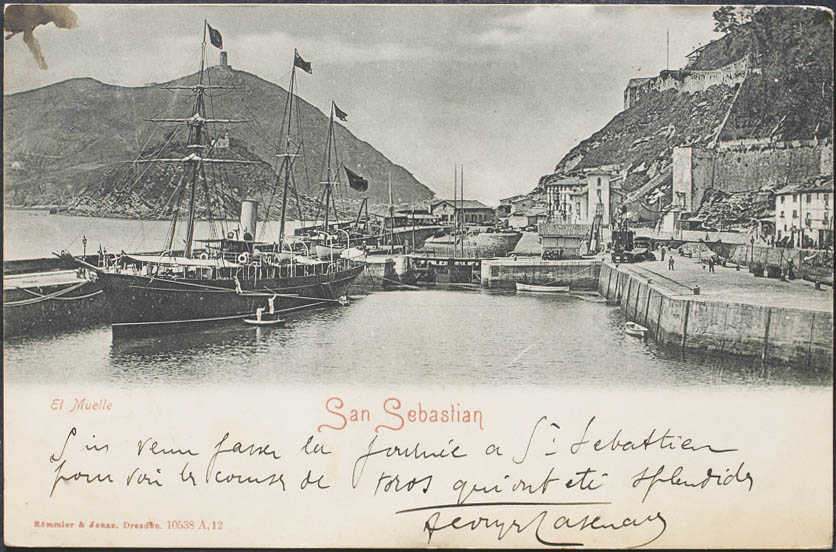 El Muelle
San Sebastian
venu passer la journée a St Sebastien
pour voir les courses de toros qui ont été splendides
Römmler & Jonas, Dresden. 10538 A, 12